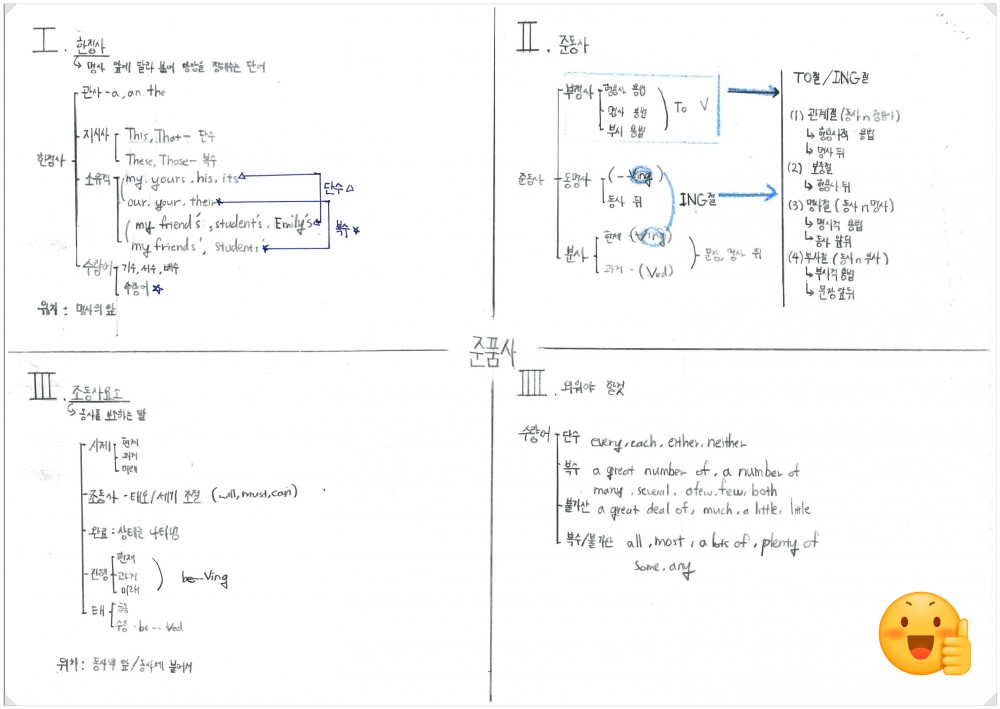 I. 한정사
↳ 명사 앞에 달라 붙어 방향을 정해주는 단어
한정사
관사 - a, an. the
지시사
This, That - 단수
These, Those - 복수
소유격
my, yours, his, its
our, your, their
my friend's, student's, Emily's
my friends', students'
단수 △
복수 ☆
수량어
기수, 서수, 배수
수량어 ☆
위치 : 명사의 앞
II. 준동사
준동사
부정사
형용사 용법
명사 용법
부사 용법
To V
동명사
(-Ving)
동사 뒤
ING절
분사
현재 - (Ving)
과거 - (Ved)
문장, 명사 뒤
TO절/ING절
(1) 관계절 (동사 n 형용사)
↳ 형용사적 용법
↳ 명사 뒤
(2) 보충절
↳ 형용사 뒤
(3) 명사절 (동사 n 명사)
↳ 명사적 용법
↳ 동사 앞뒤
(4) 부사절 (동사 n 부사)
↳ 부사적 용법
↳ 문장 앞뒤
준품사
III. 조동사요소
↳ 동사를 보조하는 말
시제
현재
과거
미래
조동사 - 태도/세기 조절 (will, must, can)
완료 : 상태를 나타냄
진행
현재
과거
미래
be--Ving
태
수동 - be -- Ved
위치 : 동사의 앞/동사에 붙어서
IIII. 외워야 할것
수량어
단수 every, each, either, neither
복수 a great number of, a number of
many, several, afew, few, both
불가산 a great deal of, much, a little, little
복수/불가산 all, most, a lots of, plenty of
some, any